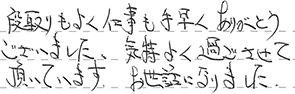 段取りもよく仕事も手早くありがとう
ございました、気持よく過ごさせて
頂いています。お世話になりました.